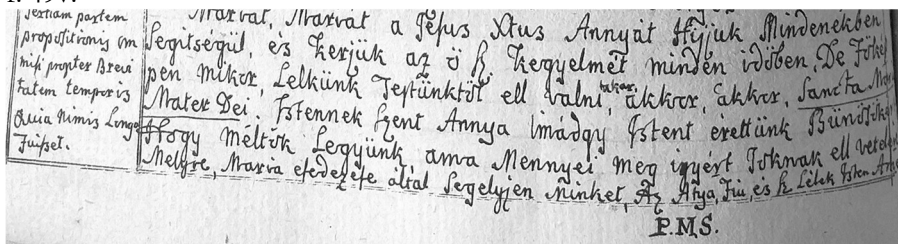 tertiam partem
propositionis om
misi propter Brevi
tatem temporis
Quia nimis Longa
Fuisset.
Mariat, Mariat a Jésus Xtus Annyát Hijjuk Mindenekben
Segitségül, és Kerjük az ö Sz. Kegyelmét minden idöben, De Fökép
pen mikor, Lelkünk Testünktöl ell valni takar, akkor, akkor, Sancta Ma
Mater Dei. Istennek Szent Annya imádgy Istent érettünk Bünösök
Hogy méltók Legyünk, ama Mennyei meg igyért Joknak ell vetelére
Melyre, Maria esedezése által Segelyjen Minket, Az Atya, Fiu, és Sz Lélek Isten
P.M.S.